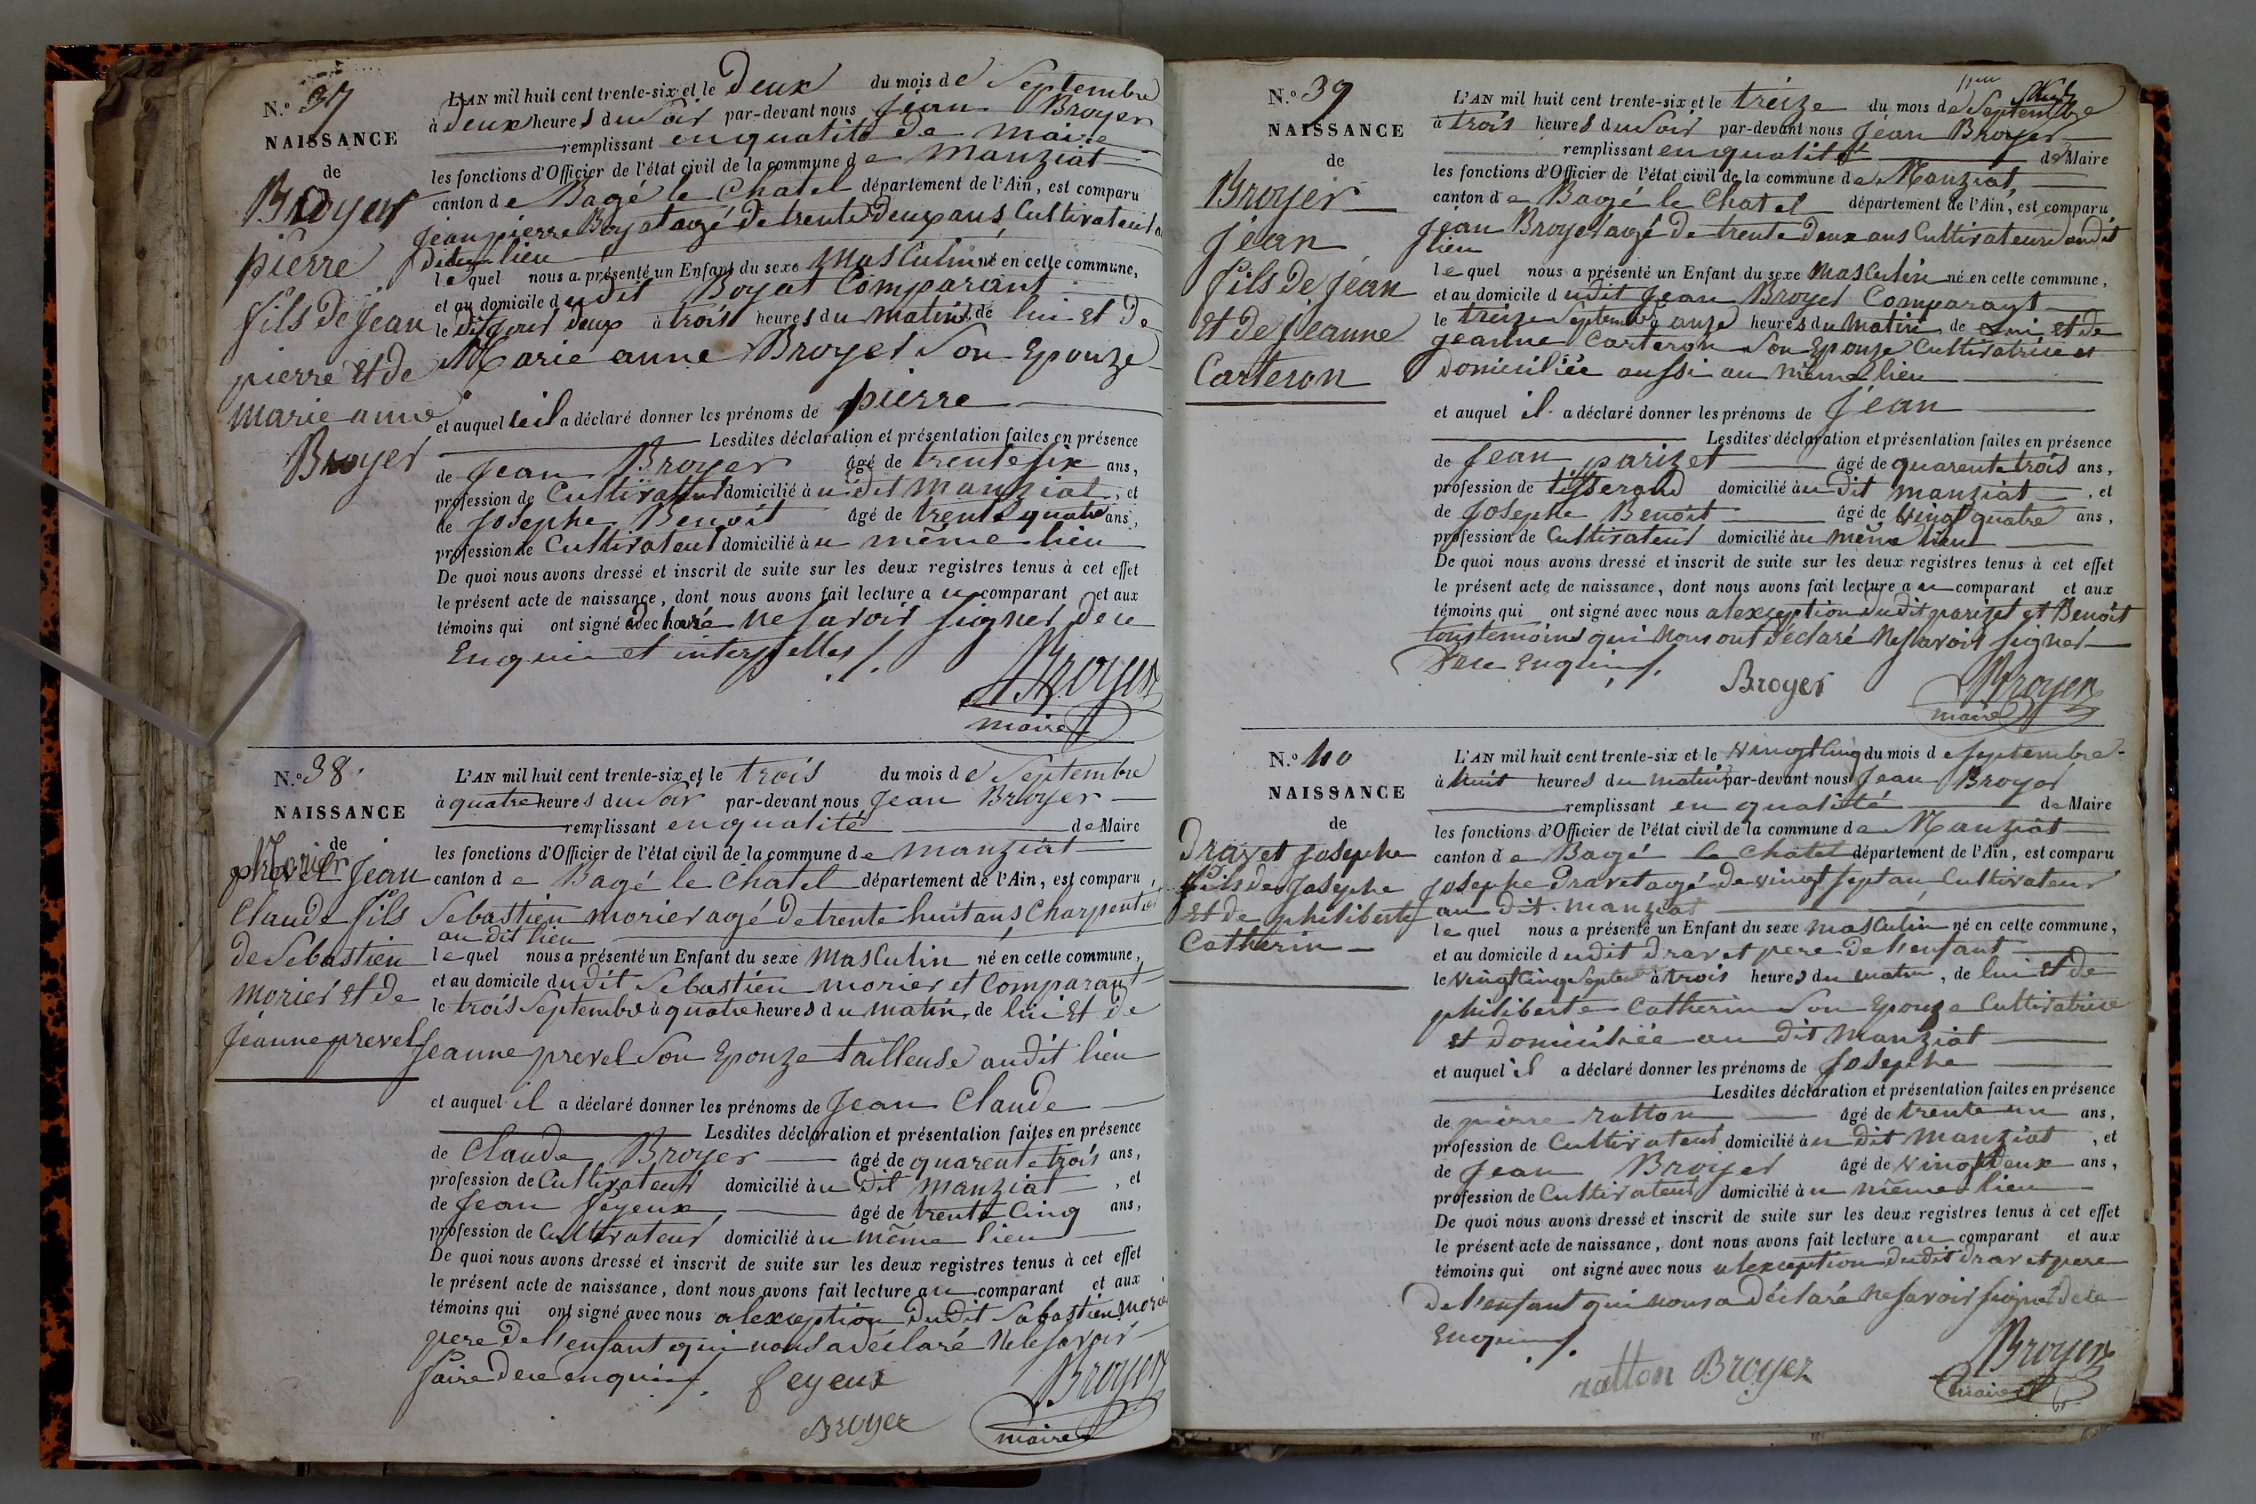 N.º 37
NAISSANCE
de
Broyer
pierre
fils de Jean
pierre et de
marie anne
Broyer
L'AN mil huit cent trente-six et le Deux du mois de Septembre
à deux heures du Soir par-devant nous Jean Broyer
remplissant en qualité de maire
les fonctions d'Officier de l'état civil de la commune de Manziat
canton de Bagé le Chatel département de l'Ain, est comparu
Jean pierre Boyat agé de trente deux ans, Cultivateur
dit lieu
lequel nous a présenté un Enfant du sexe masculin né en cette commune,
et au domicile dudit Boyat Comparant
le deux à trois heures du matin, de lui et de
Marie anne Broyer Son Epouze
et auquel il a déclaré donner les prénoms de pierre
Lesdites déclaration et présentation faites en présence
de Jean Broyer âgé de trente six ans,
profession de Cultivateur domicilié au dit manziat, et
de Josephe Benoit âgé de trente quatre ans,
profession de Cultivateur domicilié au même lieu
De quoi nous avons dressé et inscrit de suite sur les deux registres tenus à cet effet
le présent acte de naissance, dont nous avons fait lecture au comparant et aux
témoins qui ont signé avec nous ne savoir signer de ce
Enquis et interpelles ./.
Broyer
maire
N.º 38
NAISSANCE
de
Morier
Jean
Claude fils
de Sebastien
morier et de
Jeanne prevel
L'AN mil huit cent trente-six et le trois du mois de Septembre
à quatre heures du Soir par-devant nous Jean Broyer
remplissant en qualité de Maire
les fonctions d'Officier de l'état civil de la commune de manziat
canton de Bagé le Chatel département de l'Ain, est comparu,
Sebastien morier agé de trente huit ans, Charpentier
au dit lieu
lequel nous a présenté un Enfant du sexe masculin né en cette commune,
et au domicile dudit Sebastien morier et Comparant
le trois Septembre à quatre heures du matin, de lui et de
Jeanne prevel Son Epouze tailleuse audit lieu
et auquel il a déclaré donner les prénoms de Jean Claude
Lesdites déclaration et présentation faites en présence
de Claude Broyer âgé de quarente trois ans,
profession de Cultivateur domicilié au dit manziat, et
de Jean feyeux, âgé de trente Cinq ans,
profession de Cultivateur domicilié au même lieu
De quoi nous avons dressé et inscrit de suite sur les deux registres tenus à cet effet
le présent acte de naissance, dont nous avons fait lecture au comparant et aux
témoins qui ont signé avec nous alexception dudit Sabastien
pere de l'enfant qui nous a déclaré ne le savoir
faire de ce enquis ./. feyeux
Broyer
Broyer
maire
N.º 39
NAISSANCE
de
Broyer
Jean
fils de Jean
et de Jeanne
Carteron
L'AN mil huit cent trente-six et le treize du mois de Septembre
à trois heures du Soir par-devant nous Jean Broyer
remplissant en qualité de Maire
les fonctions d'Officier de l'état civil de la commune de Manziat,
canton de Bagé le Chatel département de l'Ain, est comparu
Jean Broyer agé de trente deux ans Cultivateur audit
lieu
lequel nous a présenté un Enfant du sexe masculin né en cette commune,
et au domicile dudit Jean Broyer Comparant
le treize Septembre à onze heures du matin de lui et de
Jeanne Carteron Son Epouze Cultivatrice et
domiciliée aussi au même lieu
et auquel il a déclaré donner les prénoms de Jean
Lesdites déclaration et présentation faites en présence
de Jean parizet âgé de quarente trois ans,
profession de tisserand domicilié au dit manziat, et
de Josephe Benoit âgé de vingt quatre ans,
profession de Cultivateur domicilié au même lieu
De quoi nous avons dressé et inscrit de suite sur les deux registres tenus à cet effet
le présent acte de naissance, dont nous avons fait lecture au comparant et aux
témoins qui ont signé avec nous alexception dudit parizet et Benoit
tous temoins qui nous ont déclaré ne savoir signer
de ce enquis ./.
Broyer
Broyer
maire
N.º 40
NAISSANCE
de
Dravet Josephe
fils de Josephe
et de philiberte
Catherin
L'AN mil huit cent trente-six et le vingt Cinq du mois de Septembre
à huit heures du matin par-devant nous Jean Broyer
remplissant en qualité de Maire
les fonctions d'Officier de l'état civil de la commune de Manziat
canton de Bagé le chatel département de l'Ain, est comparu
Josephe Dravet agé de vingt sept an, Cultivateur
au dit manziat
lequel nous a présenté un Enfant du sexe masculin né en cette commune,
et au domicile dudit dravet pere de l'enfant
le vingt Cinq Septembre à trois heures du matin, de lui et de
philiberte Catherin Son Epouze Cultivatrice
et domiciliée au dit Manziat
et auquel il a déclaré donner les prénoms de Josephe
Lesdites déclaration et présentation faites en présence
de pierre ratton âgé de trente un ans,
profession de Cultivateur domicilié au dit manziat, et
de Jean Broyer âgé de vingt deux ans,
profession de Cultivateur domicilié au même lieu
De quoi nous avons dressé et inscrit de suite sur les deux registres tenus à cet effet
le présent acte de naissance, dont nous avons fait lecture au comparant et aux
témoins qui ont signé avec nous alexception dudit dravet pere
de l'enfant qui nous a déclaré ne savoir signer de ce
enquis ./.
ratton Broyer
Broyer
maire